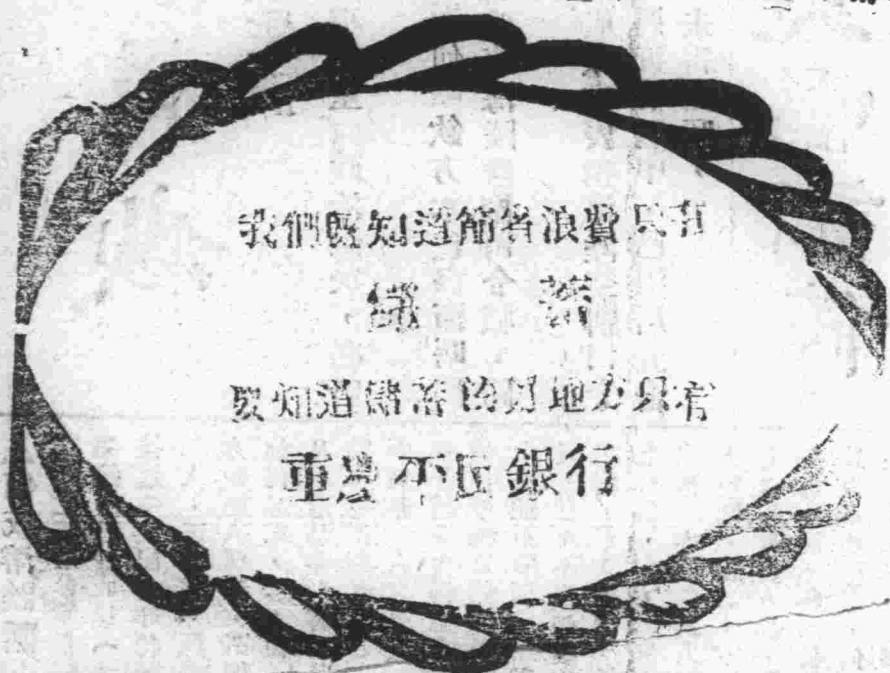 我們既知道節省浪費只有
儲蓄
要知道儲蓄的好地方只有
重慶平民銀行